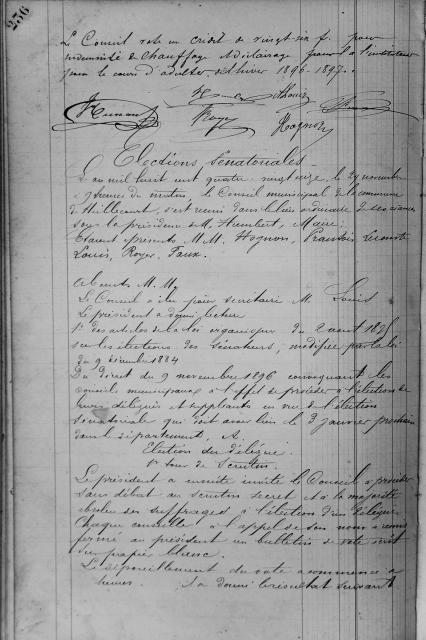 256
Le Conseil vote un crédit de vingt six f. pour
indemnité de chauffage & d'éclairage pour l'instituteur
pour le cours d'adultes, d'hiver 1896-1897.
Louis
Humbert
Royer Hognon
Elections Sénatoriales
L'an mil huit cent quatre vingt seize, le 29 novembre
9 heures du matin, le Conseil municipal de la commune
s'est réuni dans le lieu ordinaire de ses séances
sous la présidence de M. Humbert, Maire.
Etaient présents M.M. Hognon, François
Louis, Royer, Faux.
Absents M.M.
Le Conseil a élu pour secrétaire M. Louis
Le président a donné lecture
1° des articles de la loi organique du 2 aout 1875
sur les élections des sénateurs, modifiée par la loi
du 9 décembre 1884
Du décret du 9 novembre 1896 convoquant les
conseils municipaux à l'effet de procéder à l'élection de
leurs délégués et suppléants en vue de l'élection
sénatoriale qui doit avoir lieu le 3 janvier prochain
dans le département.
Election du délégué.
1er tour de scrutin.
Le président a ensuite invité le Conseil à procéder
sans débat au scrutin secret et à la majorité
absolue des suffrages à l'élection d'un délégué
Chaque conseiller à l'appel de son nom a remis
fermé au président un bulletin de vote écrit
sur papier blanc.
Le dépouillement du vote a commencé à
heures a donné le résultat suivant